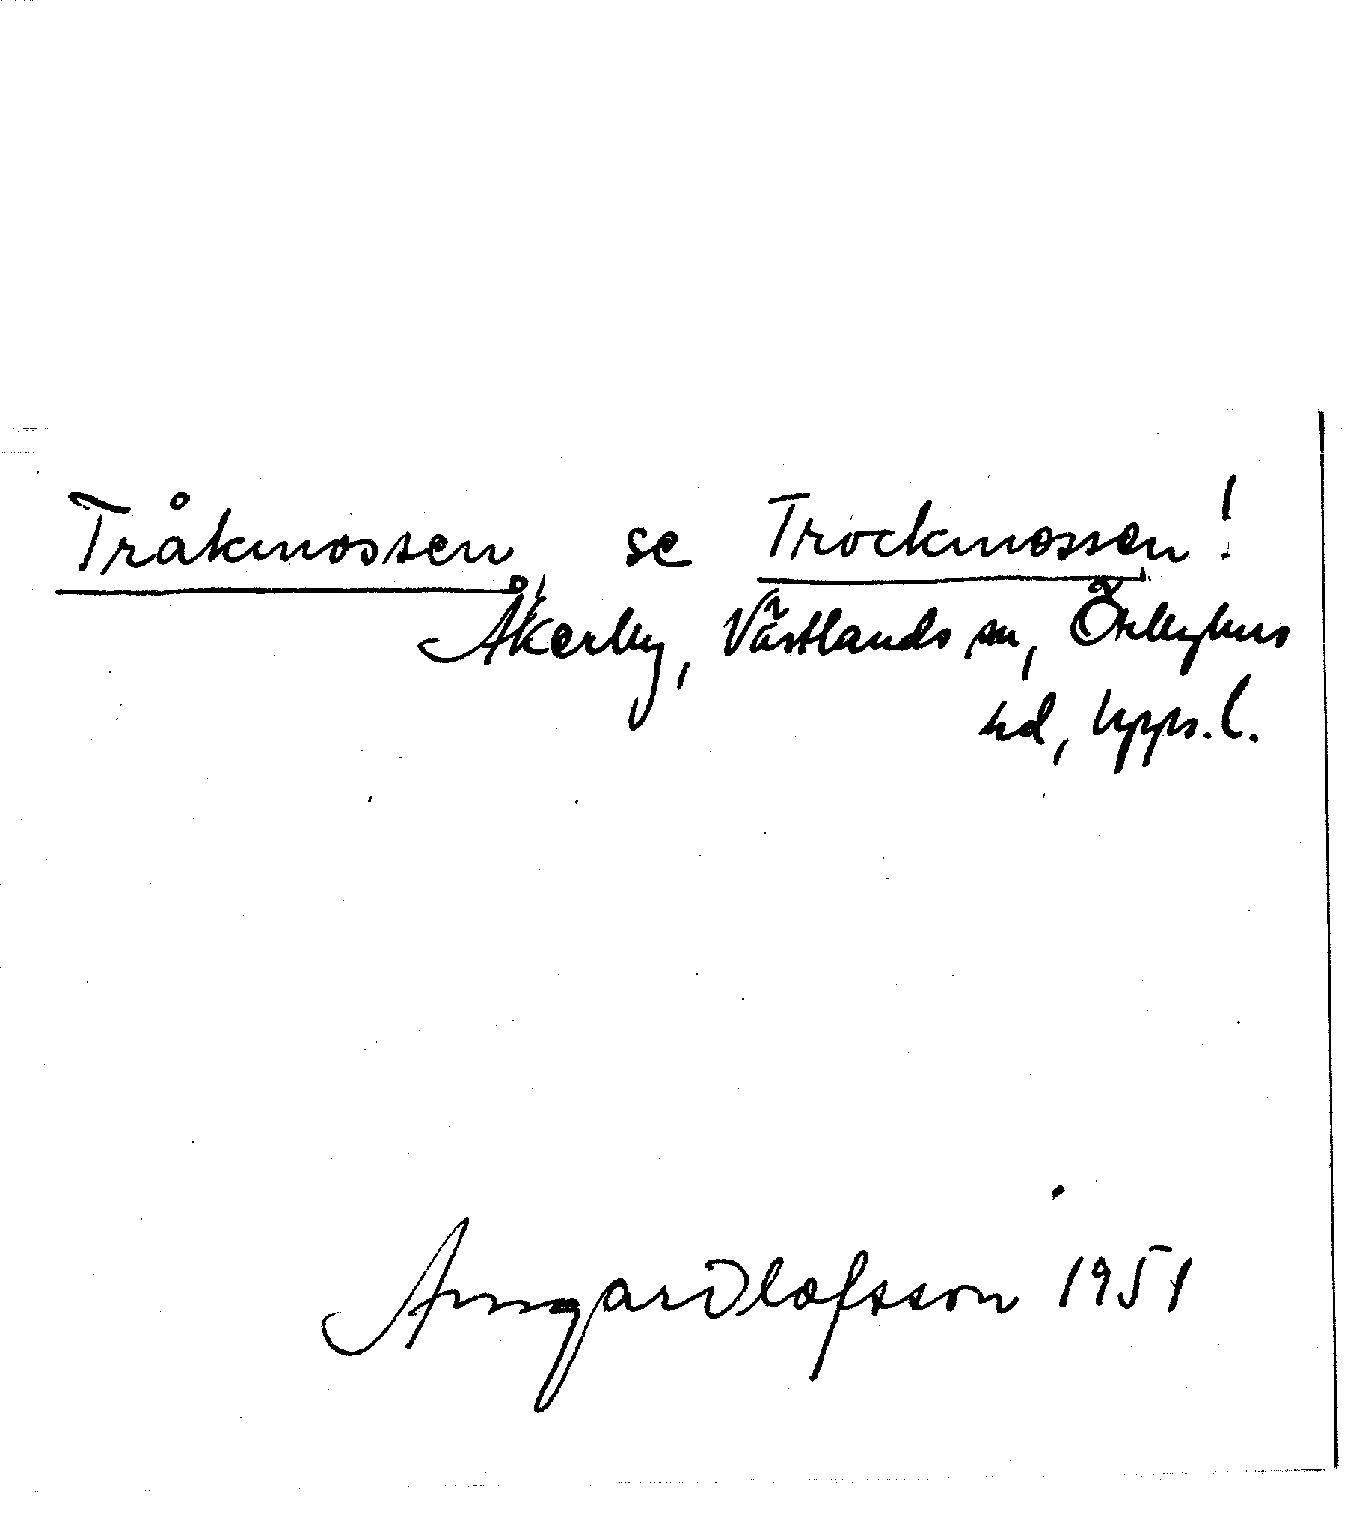 Tråkmossen se Trockmossen!
Åkerby, Västlands sn, Örbyhus
hd, Upps. l.
Olofsson 1951